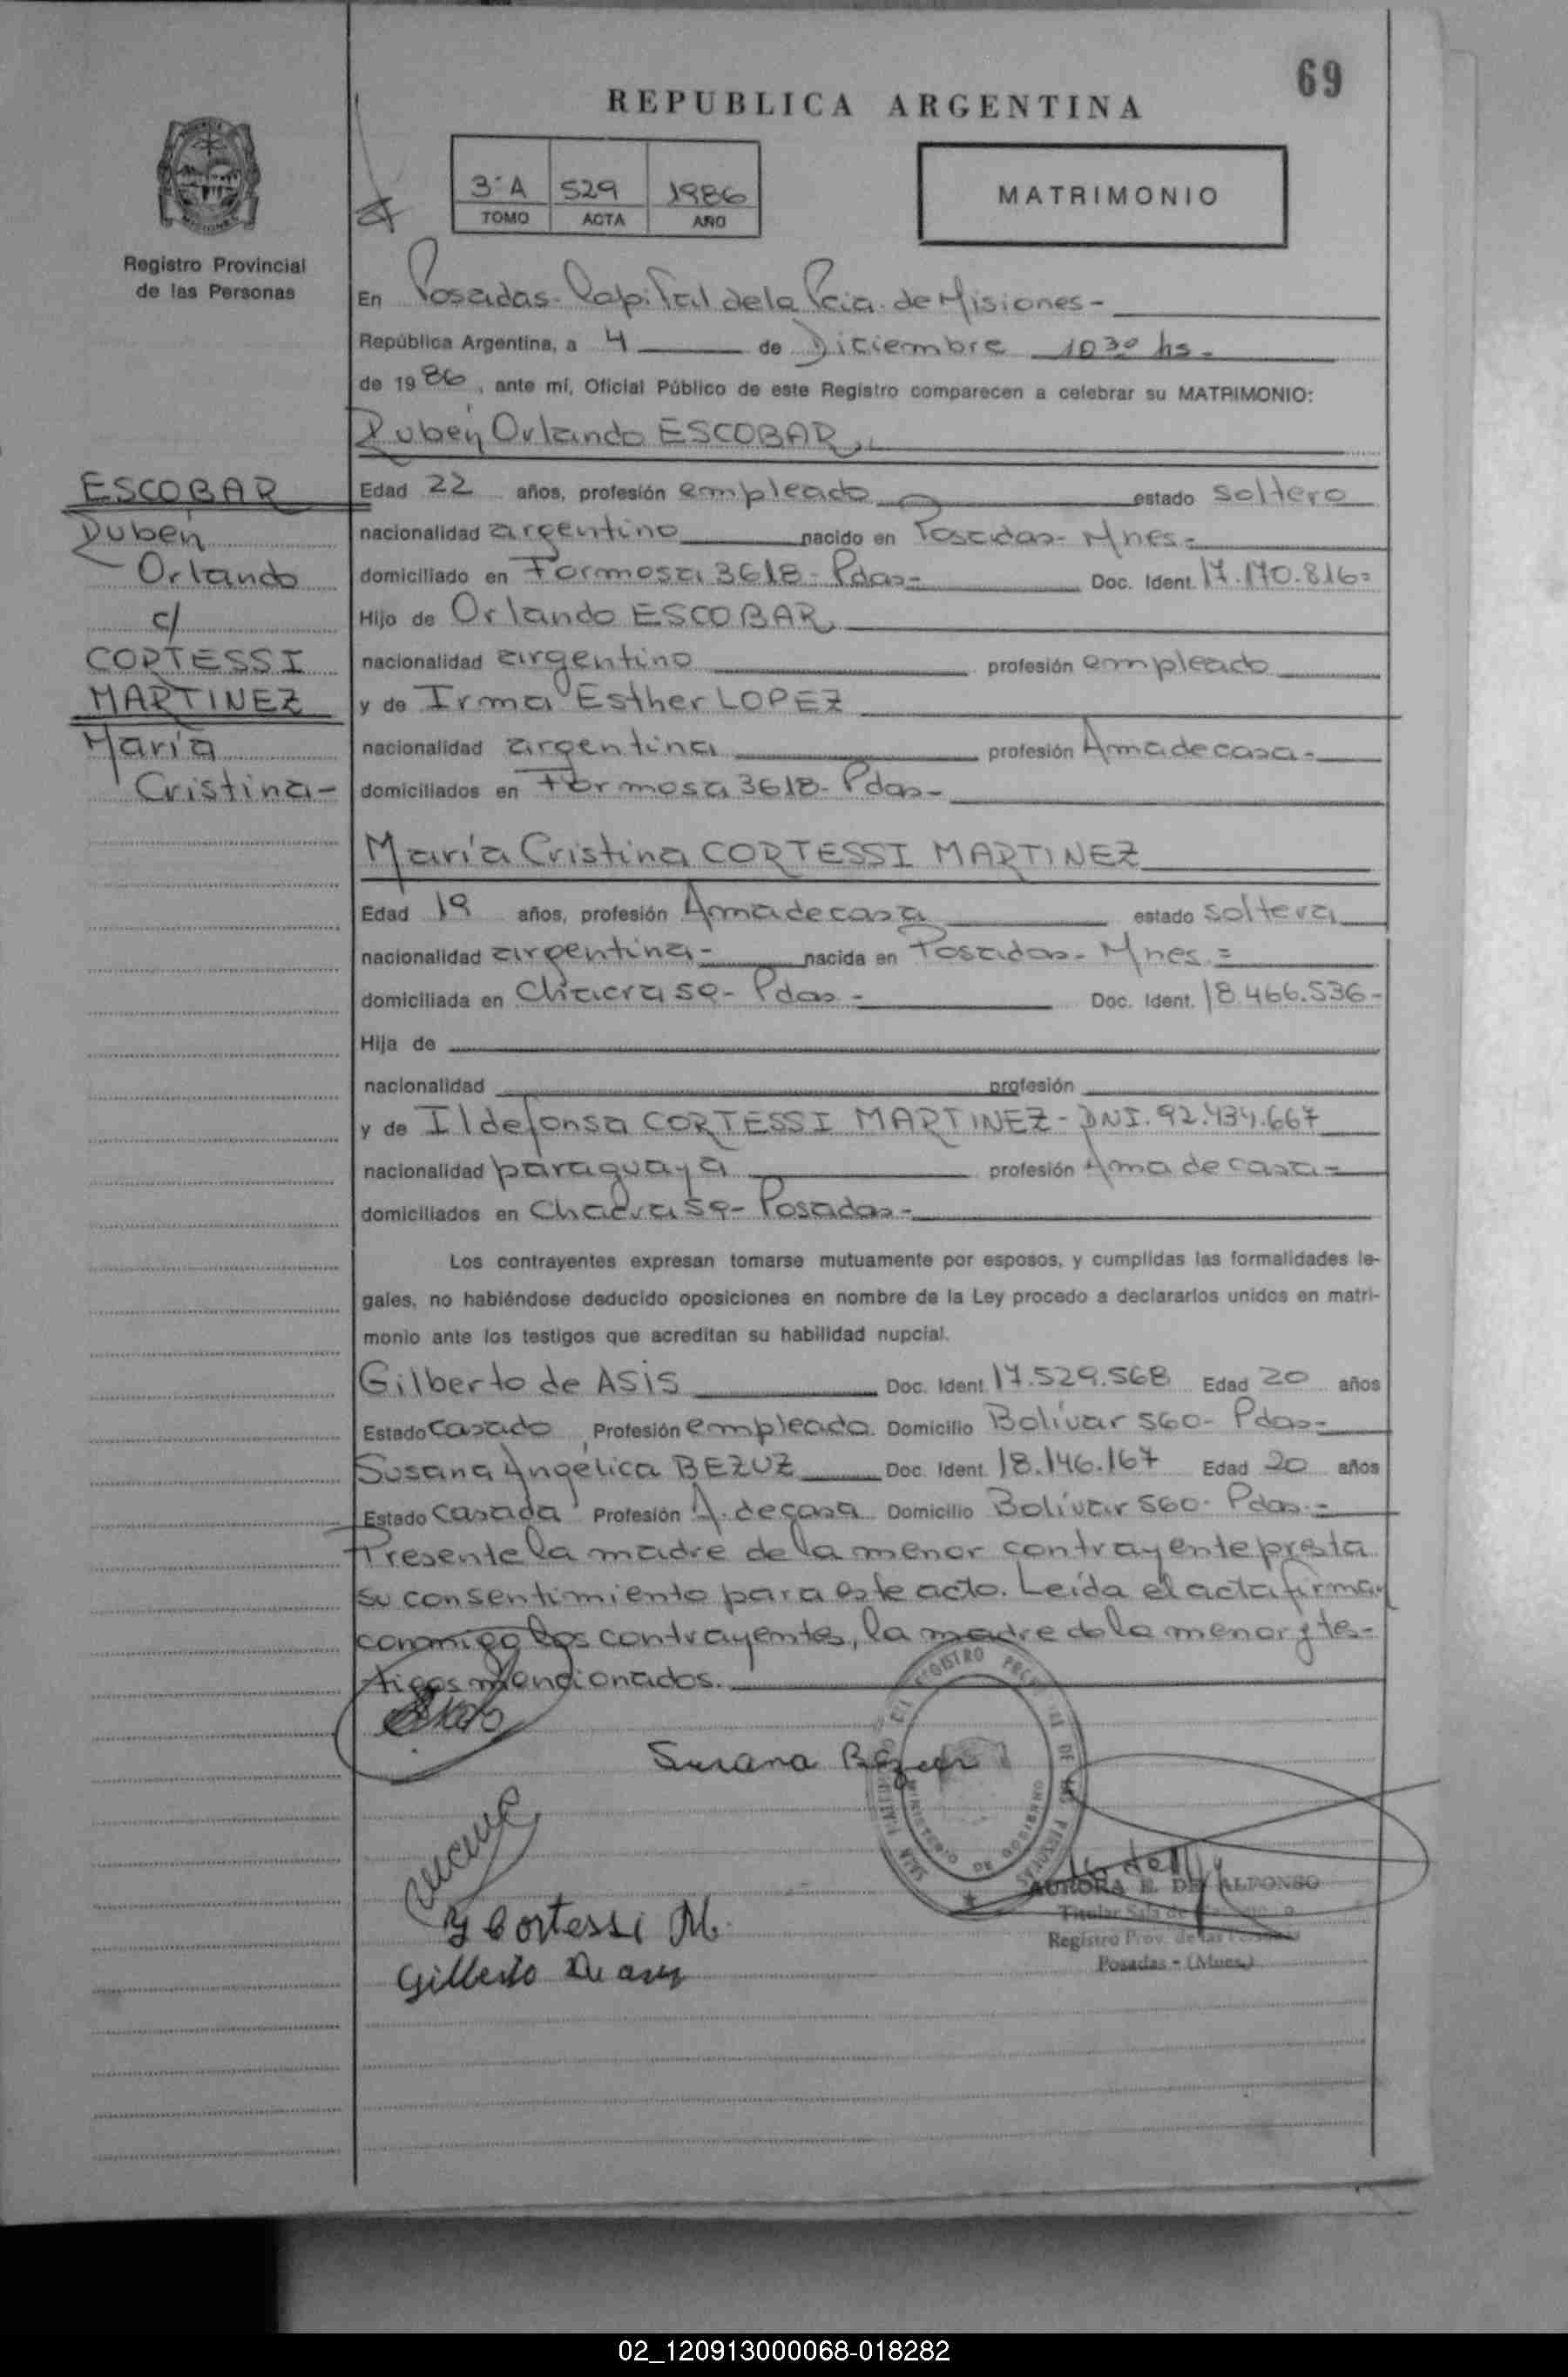 69
REPUBLICA ARGENTINA
3ºA 529 1986
TOMO ACTA AÑO
MATRIMONIO
Registro Provincial
de las Personas
En Posadas-Capital de la Pcia. de Misiones-
República Argentina, a 4 de Diciembre 10³⁰ hs-
de 1986, ante mí, Oficial Público de este Registro comparecen a celebrar su MATRIMONIO:
Rubén Orlando ESCOBAR,
ESCOBAR
Rubén
Orlando
c/
CORTESSI
MARTINEZ
María
Cristina-
Edad 22 años, profesión empleado estado soltero
nacionalidad argentino nacido en Posadas-Mnes-
domiciliado en Formosa 3618-Pdas- Doc. Ident. 17.170.816=
Hijo de Orlando ESCOBAR,
nacionalidad argentino profesión empleado
y de Irma Esther LOPEZ
nacionalidad argentina profesión Ama de casa-
domiciliados en Formosa 3618-Pdas-
María Cristina CORTESSI MARTINEZ
Edad 19 años, profesión Ama de casa estado soltera
nacionalidad argentina- nacida en Posadas-Mnes.=
domiciliada en Chacra 59-Pdas- Doc. Ident. 18.466.536-
Hija de
nacionalidad profesión
y de Ildefonsa CORTESSI MARTINEZ-DNI.92.434.667
nacionalidad paraguaya profesión Ama de casa-
domiciliados en Chacra 59-Posadas-
Los contrayentes expresan tomarse mutuamente por esposos, y cumplidas las formalidades le-
gales, no habiéndose deducido oposiciones en nombre de la Ley procedo a declararlos unidos en matri-
monio ante los testigos que acreditan su habilidad nupcial.
Gilberto de ASIS Doc. Ident. 17.529.568 Edad 20 años
Estado casado, Profesión empleado. Domicilio Bolívar 560-Pdas-
Susana Angélica BEZUZ Doc. Ident. 18.146.167 Edad 20 años
Estado casada Profesión A. de casa Domicilio Bolívar 560-Pdas.-
Presente la madre de la menor contrayente presta
su consentimiento para este acto. Leída el acta firman
conmigo los contrayentes, la madre de la menor y tes-
tigos mencionados.
Susana
Cortessi M.
Gilberto
AURORA E. DE ALFONSO
Titular Sala de
Registro Prov. de las Personas
Posadas - (Mnes.)
02_120913000068-018282